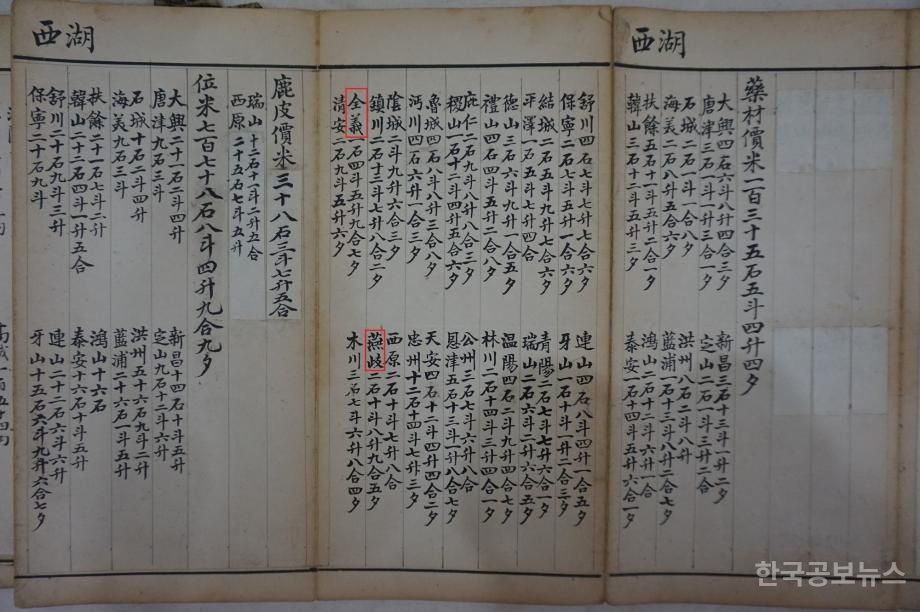 湖西
藥材價米一百三十五石五斗四升四夕
大興四石六斗八升四合三夕 新昌三石十三斗一升二夕
唐津三石一斗三升三合一夕 定山二石一斗三升二合
石城二石一斗一合八夕 洪州八石二斗八升
海美二石五斗八合七夕 藍浦一石十三斗八升二合七夕
扶餘五石十一斗五升二合一夕 鴻山二石十二斗六升一合
韓山三石十一斗五升三夕 泰安一石十四斗五升六合一夕
舒川四石七斗七升七合六夕 連山四石八斗四升一合五夕
保寧二石七斗五升一合六夕 牙山一石十斗一升二合三夕
結城二石五斗九升七合六夕 青陽二石七斗七升六合一夕
平澤一石五斗四合 瑞山二石六斗二升六合五夕
德山三石六斗四升一合五夕 温陽四石二斗九升四合七夕
禮山四石四斗四升二合八夕 林川二石十四斗三升四合一夕
庇仁二石九斗八升八合三夕 公州三石七斗六升八合
稷山一石十二斗四升五合六夕 恩津五石十三斗一升六合
魯城四石八斗八升三合八夕 天安四石十二斗四升四合二夕
沔川四石六斗八升六夕 忠州十二石十四斗七升三夕
陰城二斗九升六合三夕 西原二石十斗七升八合
鎮川二石十三斗七升八合二夕 燕岐二石十斗八升九合五夕
全義一石四斗五升九合七夕 木川三石七斗六升八合四夕
清安二石九斗五升六夕
湖西
鹿皮價米三十八石三斗七升五合
瑞山十二石十一斗二升五合
西原二十五石七斗五升
位米七百七十八石八斗四升九合九夕
大興二十一石二斗四升 新昌十四石十斗五升
唐津九石三斗 定山九石十二斗六升
石城十石二斗四升 洪州五十六石九斗二升
海美九石三斗 藍浦二十六石一斗五升
扶餘二十一石七斗二升 鴻山十六石
韓山二十二石四斗一升五合 泰安十六石十斗五升
舒川二十石九斗三升 連山二十二石六斗六升
保寧二十石九斗 牙山十五石六斗九升六合七夕
한국공보뉴스